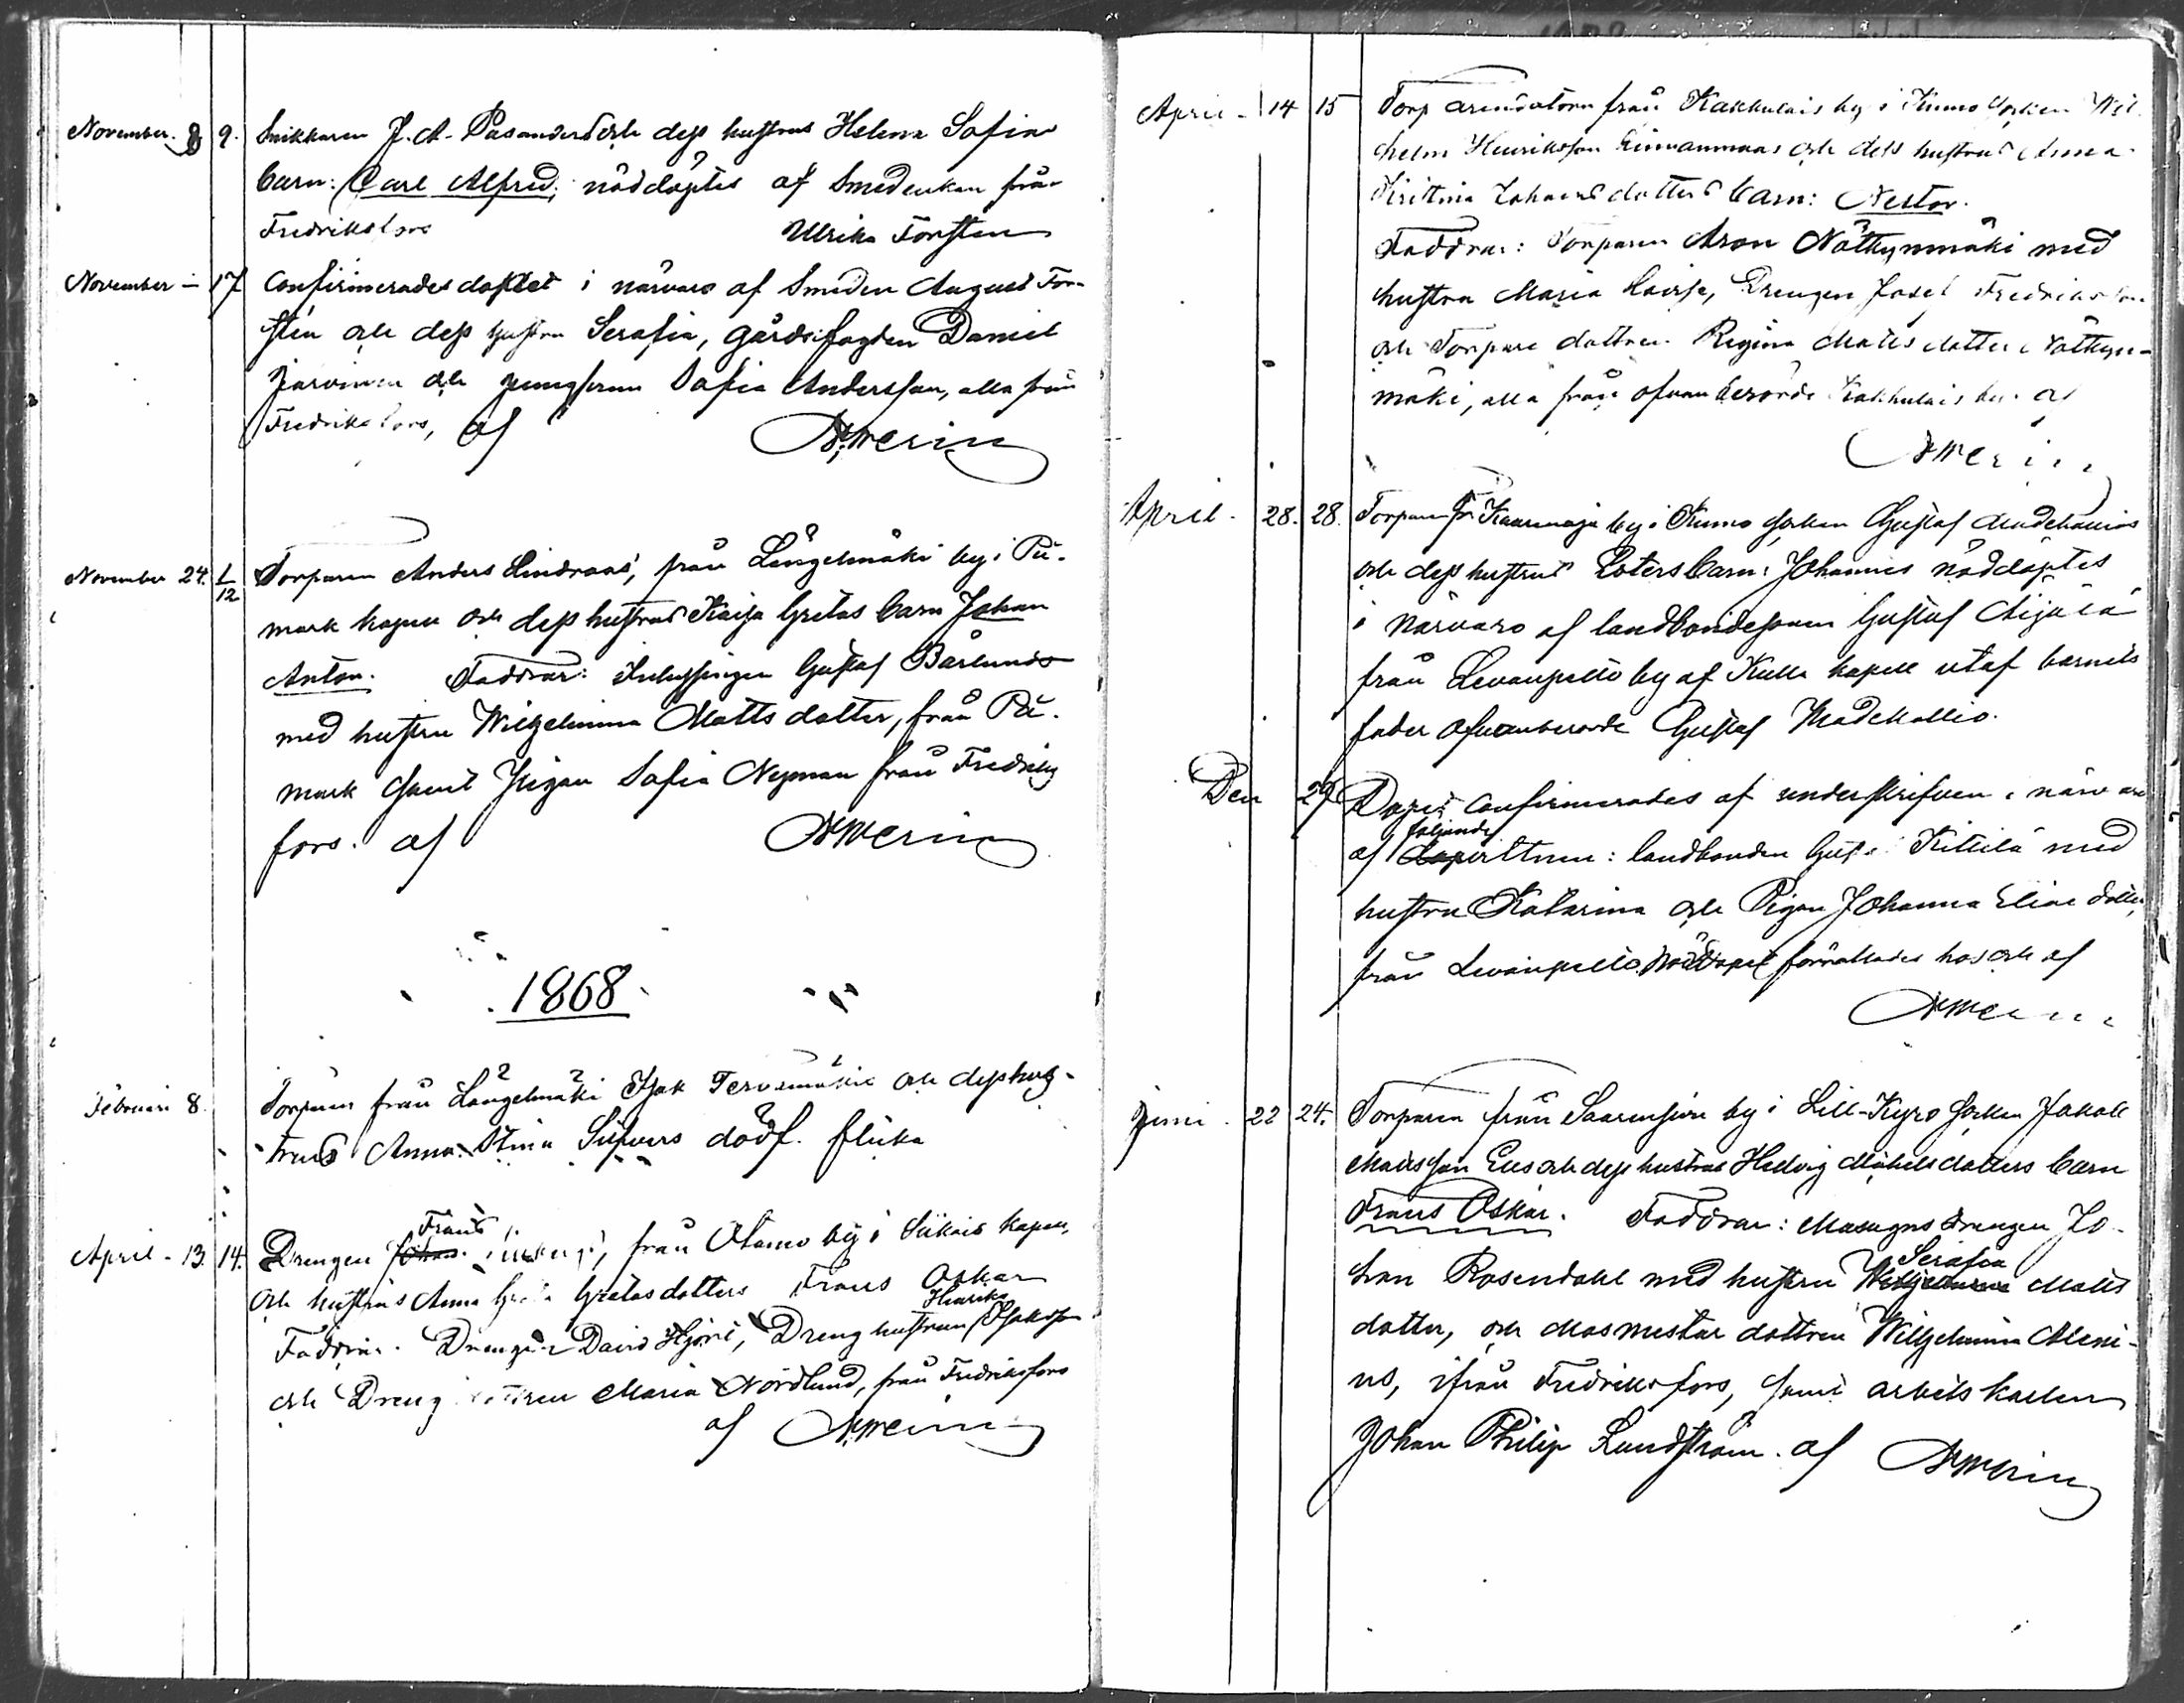 November. 8 9. Snikkaren J. A. Pasanders och dess hustrus Helena Sofias
barn: Carl Alfred, nöddöptes af Smedenkan från
Fredriksfors Ulrika Forsten
November – 17 Confirmerades döpelset i närvaro af Smeden August For-
stén och dess hustru Serafia, gårdsfogden Daniel
Järvinen och jungfrun Sofia Andersson, alla från
Fredriksfors, af
November 24. 1/12 Torparen Anders Lindroos, från Längelmäki by i På-
mark kapell och dess hustrus Kaisa Gretas barn Johan
Anton. Faddrar: Inhysingen Gustaf Bärlund
med hustru Wilhelmina Mattsdotter, från På-
mark samt Pigan Sofia Nyman från Fredriks
fors. af
1868
Februari 8. Torparen från Längelmäki Isak Tervamäkis och dess hus-
trus Anna Stina Sifvers dödf. flicka
April – 13. 14. Drengen Frans från Otamo by i Siikais kapell,
och hustrus Anna Greta Gretasdotters Frans Oskar
Henrika
Faddrar. Drengen David Hjort, Dreng hustrun Isaksson
och Dreng dottren Maria Nordlund, från Fredriksfors
af
April – 14 15 Torp arendatorn från Kakkulais by i Kumo Socken Wil-
helm Henriksson och dess hustrus Anna
Kristina Johansdotters barn: Nestor.
Faddrar: Torparen Aron Nätkynmäki med
hustru Maria Lovisa, Drengen Josef Fredriksson
och Torpare dottren Regina Mattsdotter Nätkyn-
mäki, alla från ofvanberörde Kakkulais by. af
April – 28. 28. Torparen fr. Kaarenoja by i Kumo Socken Gustaf Madekallios
och dess hustrus barn: Johannes nöddöptes
i närvaro af landbondesonen Gustaf Äijälä
från Levanpelto by af Kulla kapell utaf barnets
fader ofvanberörde Gustaf Madekallio.
Den 29 Dopet confirmerades af underskrifven i närvaro
följande
af dopvittnen: landbonden Gust. Kittilä med
hustru Katarina och Pigan Johanna Elias dotter,
från Levanpelto. Nöddopet förrättades hos och af
Juni. 22 24. Torparen från Saarensivu by i Lill-Kyro Socken Jakob
Mattsson och dess hustrus Hedvig Mikelsdotters barn
Frans Oskar. Faddrar: Masugns drengen Jo-
Serafia
han Rosendahl med hustru Wilhelmina Matts
dotter, och Masmästar dottren Wilhelmina Aleni-
us, ifrån Fredriksfors, samt arbetskarlen
Johan Philip Lundström. af